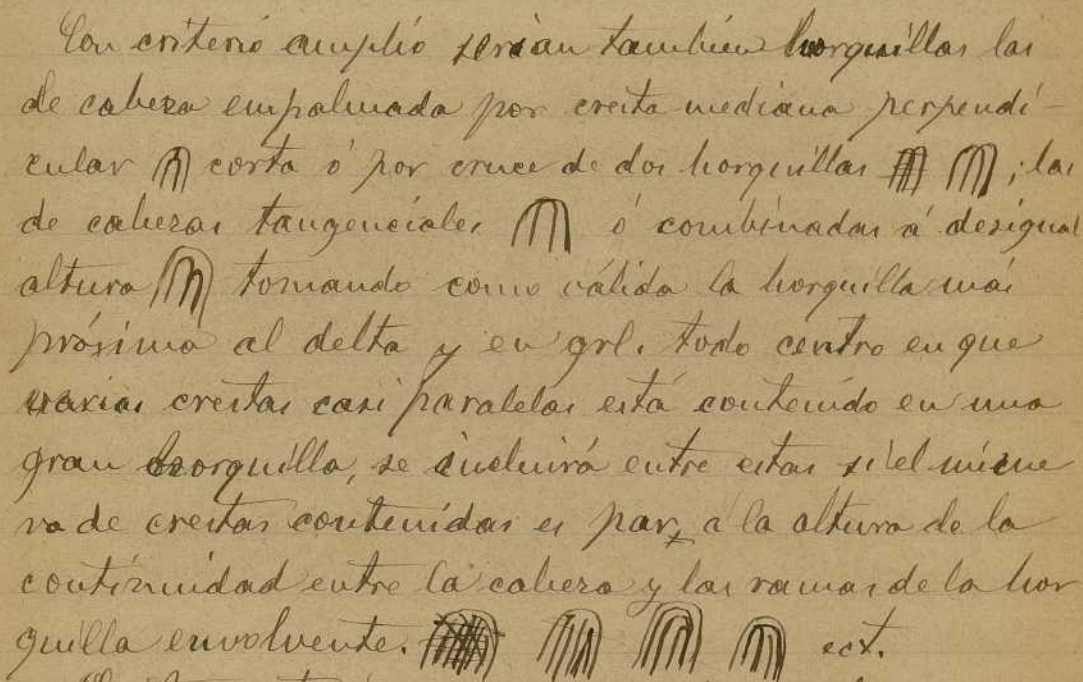 Con criterio amplio serian también horquillas las
de cabeza empalmada por cresta mediana perpendi-
cular corta ó por cruce de dos horquillas ; las
de cabezas tangenciales ó combinadas á desigual
altura tomando como válida la horquilla más
próxima al delta y en grl. todo centro en que
varias crestas casi paralelas está contenido en una
gran horquilla, se incluirá entre estas si el núme
ro de crestas contenidas es par, á la altura de la
continuidad entre la cabeza y las ramas de la hor
quilla envolvente. ect.